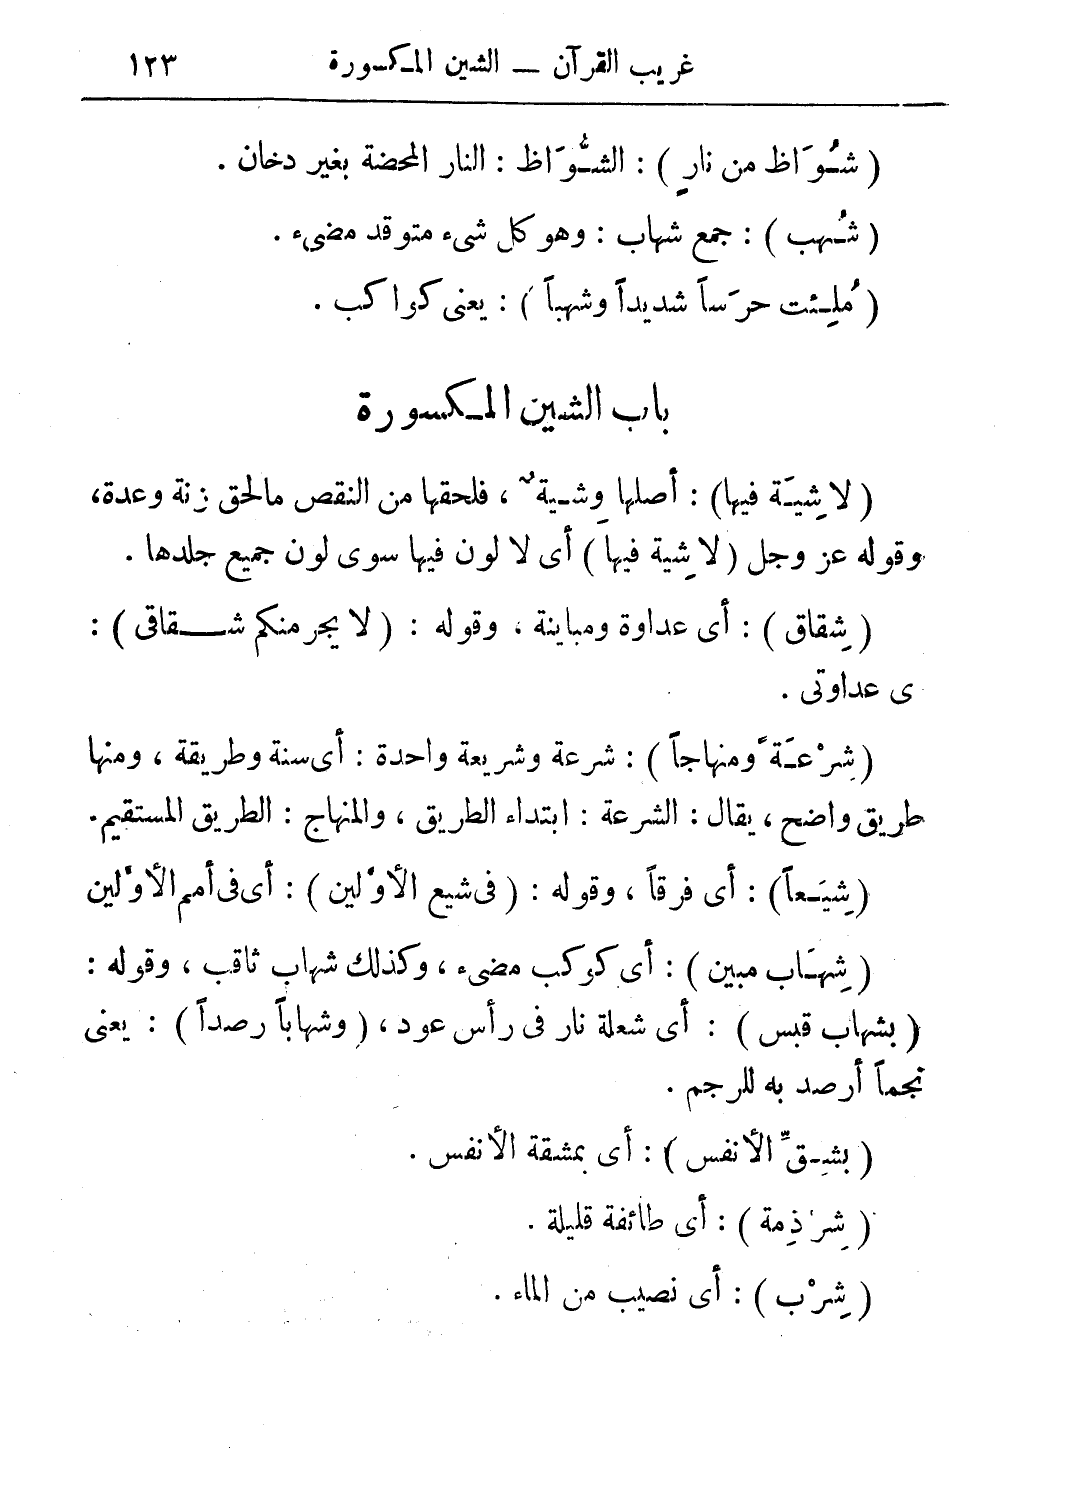 غريب القرآن — الشين المكسورة ١٢٣
( شُوَاظ من نارٍ ) : الشُّوَاظ : النار المحضة بغير دخان .
( شُهب ) : جمع شهاب : وهو كل شىء متوقد مضىء .
( مُلِئت حرَساً شديداً وشهباً ) : يعنى كواكب .
باب الشين المكسورة
( لا شِيَة فيها) : أصلها وِشْية ، فلحقها من النقص مالحق زنة وعدة،
وقوله عز وجل ( لا شِية فيها ) أى لا لون فيها سوى لون جميع جلدها .
( شِقاق ) : أى عداوة ومباينة ، وقوله : ( لا يجرمنكم شقاقى ) :
ى عداوتى .
( شِرْعَةً ومنهاجاً ) : شرعة وشريعة واحدة : أى سنة وطريقة ، ومنها
طريق واضح ، يقال : الشرعة : ابتداء الطريق ، والمنهاج : الطريق المستقيم.
( شِيَعاً) : أى فرقاً ، وقوله : ( فى شيع الأوّلين ) : أى فى أمم الأوّلين
( شِهَاب مبين ) : أى كوكب مضىء ، وكذلك شهاب ثاقب ، وقوله :
( بشهاب قبس ) : أى شعلة نار فى رأس عود ، ( وشهاباً رصداً ) : يعنى
نجماً أرصد به للرجم .
( بشِقِّ الأنفس ) : أى بمشقة الأنفس .
( شِرْذِمة ) : أى طائفة قليلة .
( شِرْب ) : أى نصيب من الماء .